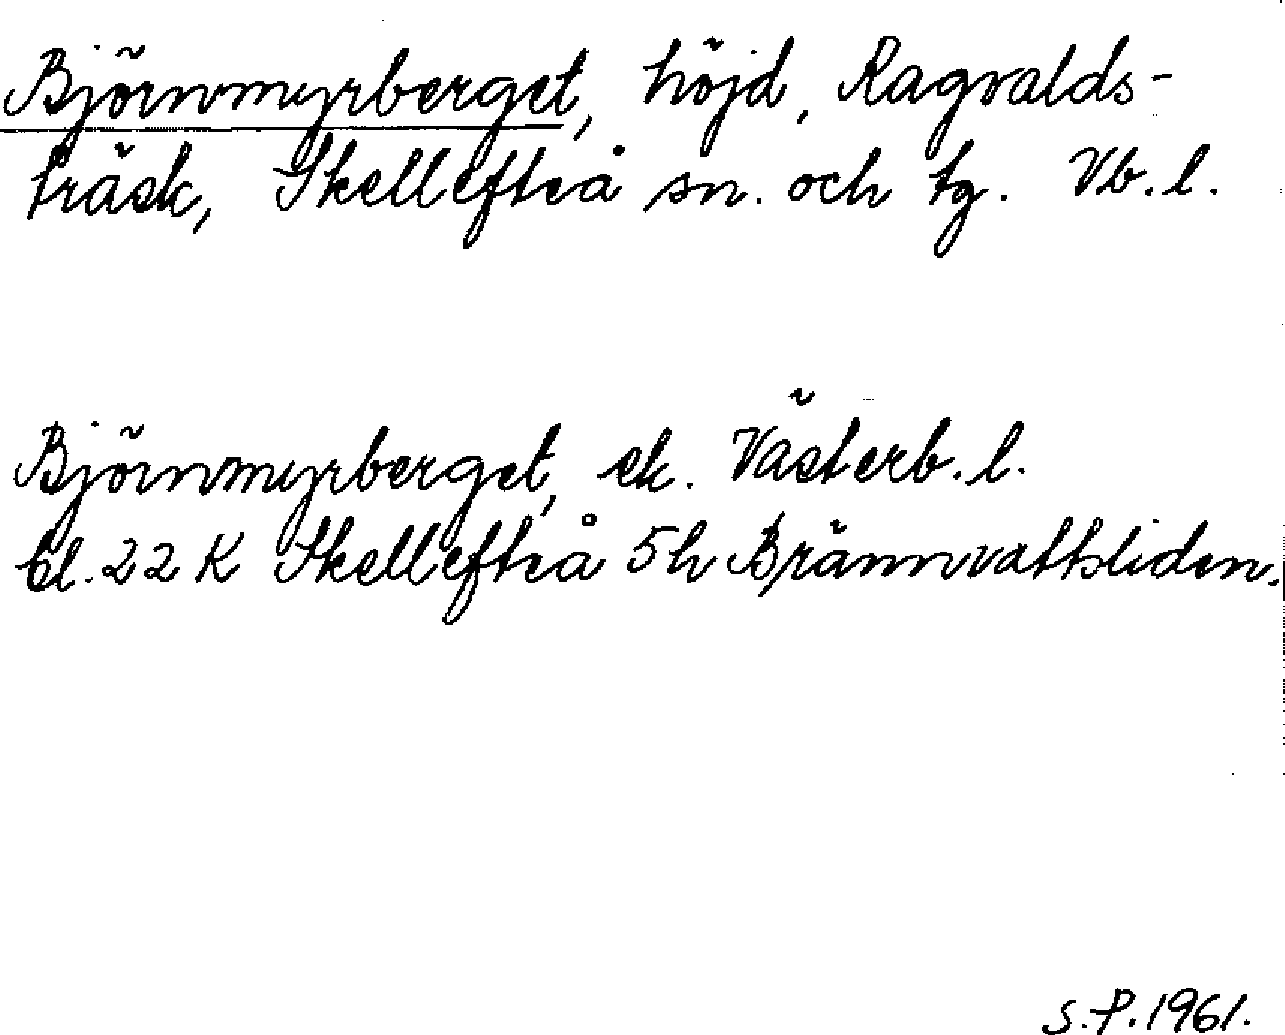 Björnmyrberget, höjd, Ragvalds-
träsk, Skellefteå sn. och tg. Vb. l.
Björnmyrberget, ek. Västerb. l.
bl. 22 K Skellefteå 5h Brännvattsliden.
S.P. 1961.